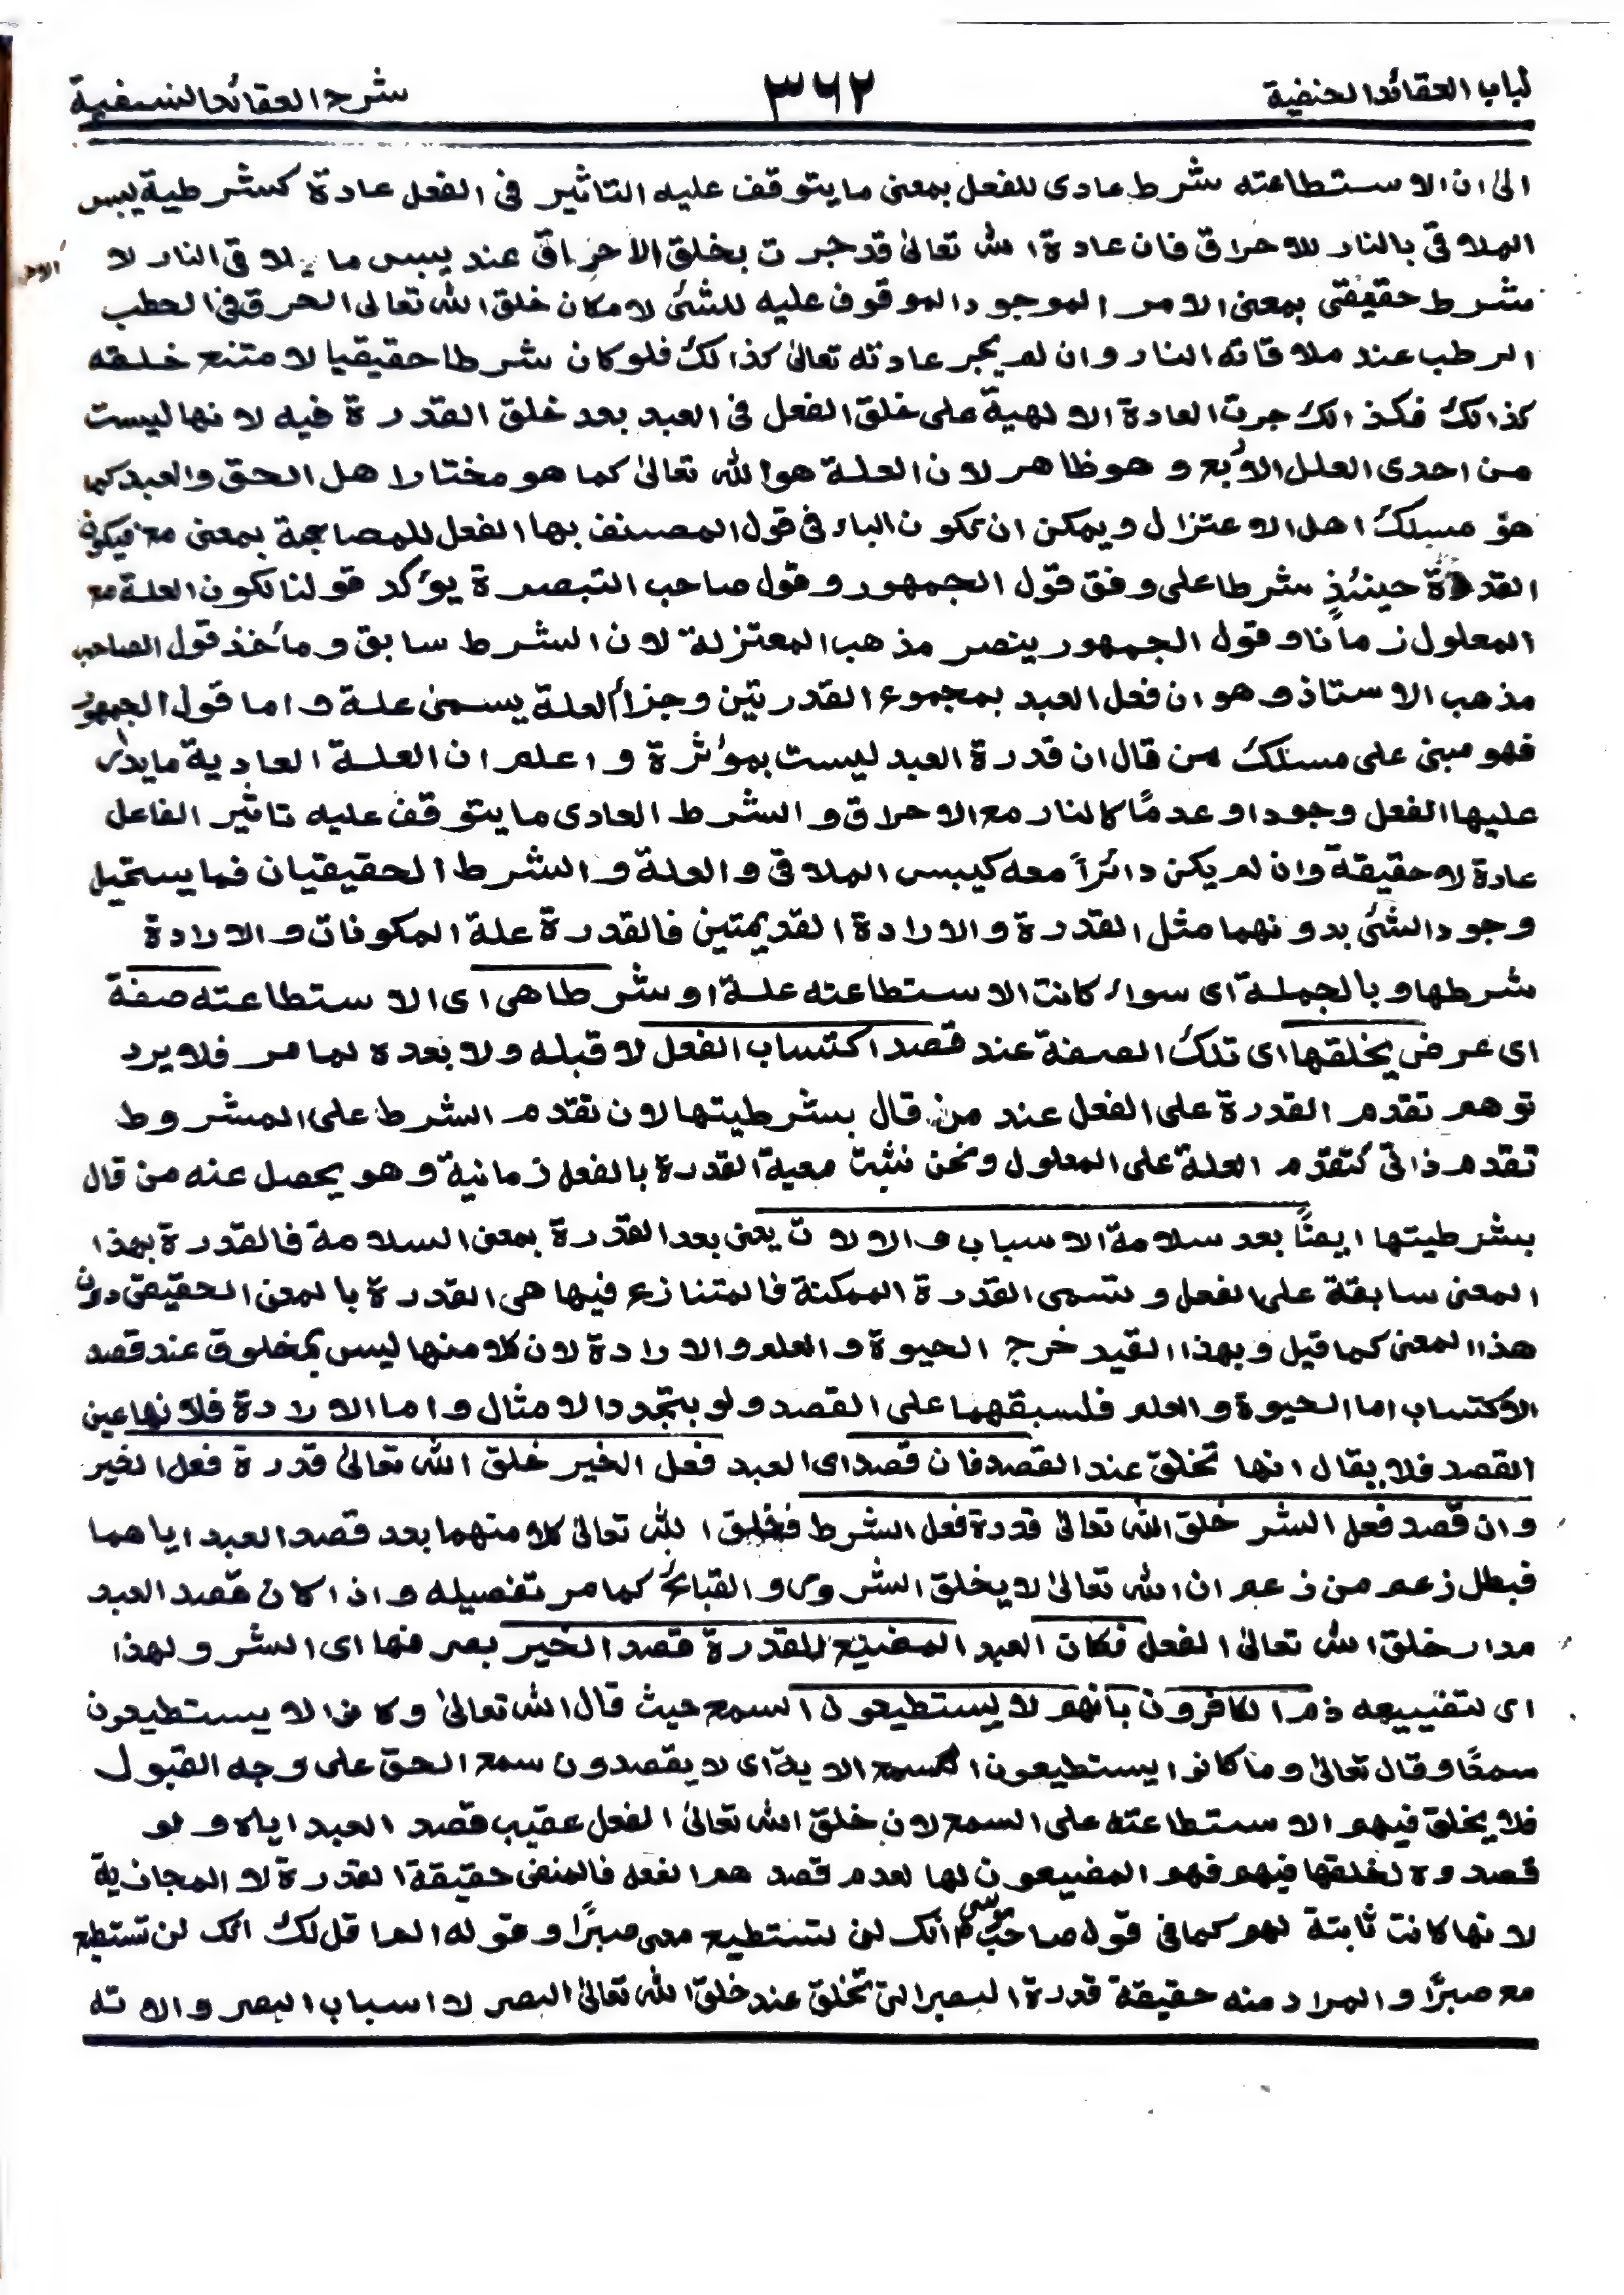 لباب العقائد الحنفية ٣٦٢ شرح العقائد النسفية
الیٰ ان الاستطاعته شرط عادی للفعل بمعنی ما يتوقف عليه التاثير فی الفعل عادة كشرطية يبس
الملاقی بالنار للاحراق فان عادة الله تعالیٰ قد جرت بخلق الاحراق عند يبس ما يلاقی النار لا
شرط حقيقتی بمعنی الامر الموجود الموقوف عليه للشئ لامكان خلق الله تعالی الحرق فی الحطب
الرطب عند ملاقاته النار وان لم يجر عادته تعالیٰ كذالك فلو كان شرطا حقيقيا لامتنع خلقه
كذالك فكذالك جرت العادة الالهية علی خلق الفعل فی العبد بعد خلق القدرة فيه لانها ليست
من احدی العلل الاربع و هو ظاهر لان العلة هو الله تعالیٰ كما هو مختار اهل الحق والعبد كما
هو مسلك اهل الاعتزال ويمكن ان يكون الباء فی قول المصنف بها الفعل للمصاحبة بمعنی مع فيكون
القدرة حينئذٍ شرطا علی وفق قول الجمهور و قول صاحب التبصرة يؤكد قولنا لكون العلة مع
المعلول زمانا و قول الجمهور ينصر مذهب المعتزلة لان الشرط سابق و مأخذ قول الصاحب
مذهب الاستاذ و هو ان فعل العبد بمجموع القدرتين وجزأ العلة يسمی علة و اما قول الجمهور
فهو مبنی علی مسلك من قال ان قدرة العبد ليست بمؤثرة و اعلم ان العلة العادية ما يدار
عليها الفعل وجودا و عدمًا كالنار مع الاحراق و الشرط العادی ما يتوقف عليه تاثير الفاعل
عادة لا حقيقة وان لم يكن دائرًا معه كيبس الملاقی و العلة و الشرط الحقيقيان فما يستحيل
وجود الشئ بدونهما مثل القدرة و الارادة القديمتين فالقدرة علة المكونات و الارادة
شرطها و بالجملة ای سواء كانت الاستطاعته علة او شرطا هی ای الاستطاعته صفة
ای عرض يخلقها ای تلك الصفة عند قصد اكتساب الفعل لا قبله ولا بعده لما مر فلا يرد
توهم تقدم القدرة علی الفعل عند من قال بشرطيتها لان تقدم الشرط علی المشروط
تقدم ذاتی كتقدم العلة علی المعلول ونحن نثبت معية القدرة بالفعل زمانية و هو يحصل عنه من قال
بشرطيتها ايضًا بعد سلامة الاسباب و الالات يعنی بعد القدرة بمعنی السلامة فالقدرة بهذا
المعنی سابقة علی الفعل و تسمی القدرة الممكنة فالمتنازع فيها هی القدرة بالمعنی الحقيقی دون
هذا المعنی كما قيل و بهذا القيد خرج الحيوة و العلم والارادة لان كلا منها ليس بمخلوق عند قصد
الاكتساب اما الحيوة و العلم فلسبقهما علی القصد ولو بتجدد الامثال و اما الارادة فلانها عين
القصد فلا يقال انها تخلق عند القصد فان قصد ای العبد فعل الخير خلق الله تعالیٰ قدرة فعل الخير
وان قصد فعل الشر خلق الله تعالیٰ قدرة فعل الشرط فخلق الله تعالیٰ كلا منهما بعد قصد العبد اياهما
فبطل زعم من زعم ان الله تعالیٰ لا يخلق الشرور و القبائح كما مر تفصيله و اذا كان قصد العبد
مدار خلق الله تعالیٰ الفعل فكان العبد المضيع للقدرة قصد الخير بصرفها ای الشر ولهذا
ای لتضييعه ذم الكافرون بانهم لا يستطيعون السمع حيث قال الله تعالیٰ وكانوا لا يستطيعون
سمعًا وقال تعالیٰ وما كانوا يستطيعون السمع الاية ای لا يقصدون سمع الحق علی وجه القبول
فلا يخلق فيهم الاستطاعته علی السمع لان خلق الله تعالیٰ الفعل عقيب قصد العبد اياه و لو
قصدوه لخلقها فيهم فهم المضيعون لها لعدم قصد هم الفعل فالمنفی حقيقة القدرة لا المجازية
لانها كانت ثابتة لهم كما فی قول صاحب موسی م انك لن تستطيع معی صبرًا و قوله الم اقل لك انك لن تستطيع
مع صبرًا و المراد منه حقيقة قدرة الصبر التی تخلق عند خلق الله تعالیٰ الصبر لا اسباب الصبر و الاته